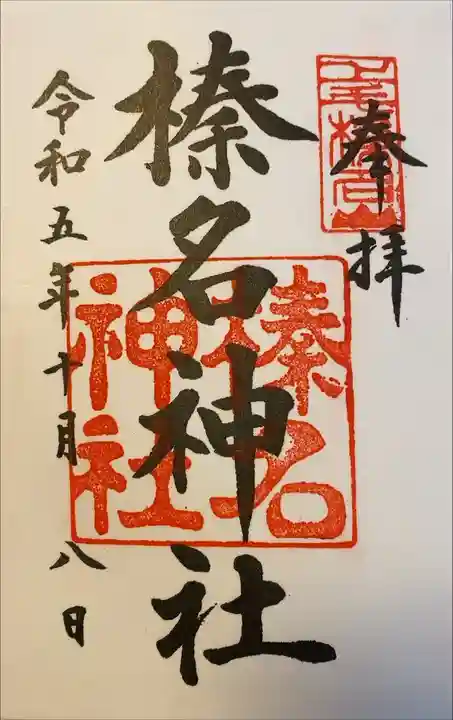 奉拝
榛名神社
令和五年十月八日
榛名
神社